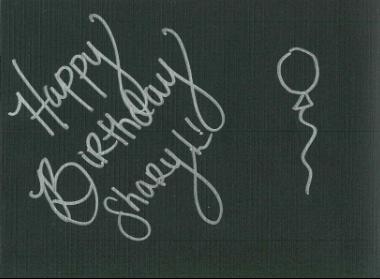 Happy
Birthday
Sharyl!!